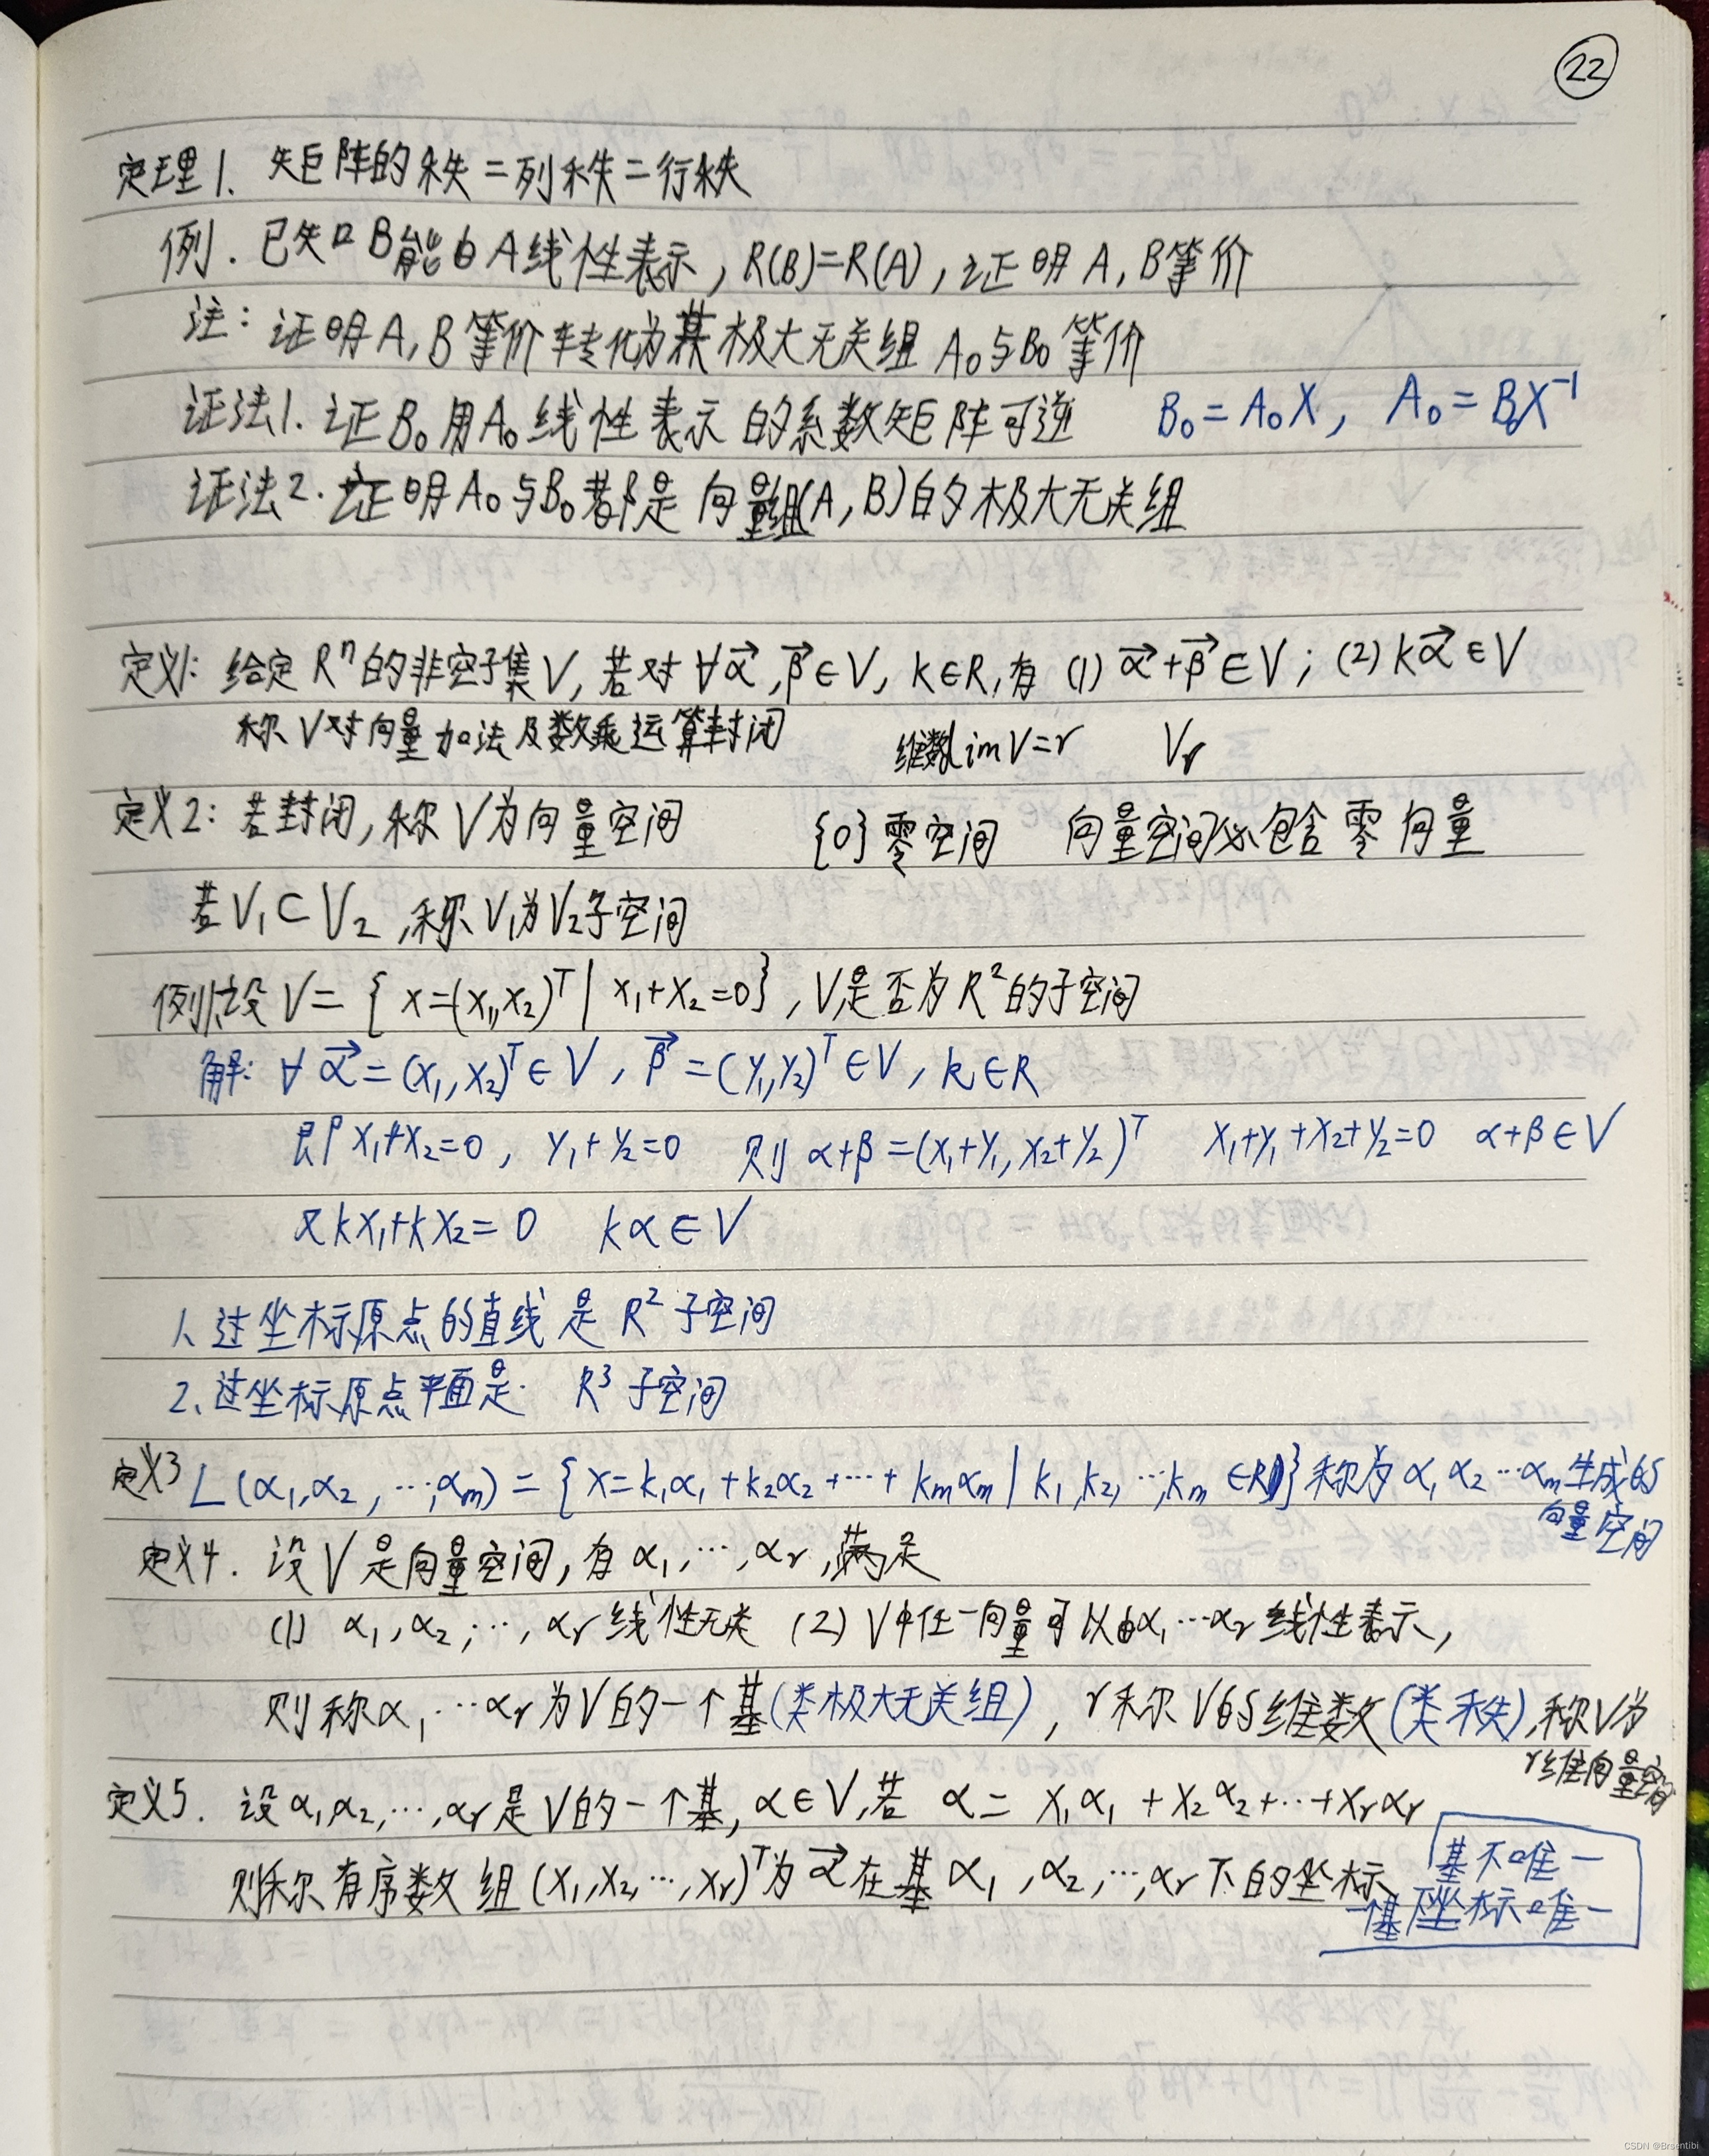 22
定理1. 矩阵的秩=列秩=行秩
例. 已知B能由A线性表示, R(B)=R(A), 证明 A, B等价
注: 证明A, B等价转化为其极大无关组 A₀与B₀等价
证法1. 证B₀用A₀线性表示的系数矩阵可逆 B₀=A₀X, A₀=B₀X⁻¹
证法2. 证明A₀与B₀都是向量组(A, B)的极大无关组
定义1: 给定Rⁿ的非空子集V, 若对∀α⃗, β⃗∈V, k∈R, 有 (1) α⃗+β⃗∈V; (2) kα⃗∈V
称V对向量加法及数乘运算封闭 维数dim V=r Vᵣ
定义2: 若封闭, 称V为向量空间 {0}零空间 向量空间必包含零向量
若V₁⊂V₂, 称V₁为V₂子空间
例1.设 V={x=(x₁,x₂)ᵀ| x₁+x₂=0}, V是否为R²的子空间
解: ∀α⃗=(x₁,x₂)ᵀ∈V, β⃗=(y₁,y₂)ᵀ∈V, k∈R
即x₁+x₂=0, y₁+y₂=0 则 α+β=(x₁+y₁, x₂+y₂)ᵀ x₁+y₁+x₂+y₂=0 α+β∈V
又kx₁+kx₂=0 kα∈V
1、过坐标原点的直线是 R²子空间
2、过坐标原点平面是 R³子空间
定义3 L(α₁,α₂,…,αₘ)={x=k₁α₁+k₂α₂+…+kₘαₘ|k₁,k₂,…,kₘ∈R}称为α₁ α₂…αₘ生成的
向量空间
定义4. 设V是向量空间, 有α₁,…,αᵣ,满足
(1) α₁,α₂,…,αᵣ线性无关 (2) V中任一向量可以由α₁…αᵣ线性表示,
则称α₁…αᵣ为V的一个基(类极大无关组), r称V的维数(类秩),称V为
r维向量空间
定义5. 设α₁,α₂,…,αᵣ是V的一个基, α∈V,若 α=x₁α₁+x₂α₂+…+xᵣαᵣ
则称有序数组(x₁,x₂,…,xᵣ)ᵀ为α⃗在基α₁,α₂,…,αᵣ下的坐标
基不唯一
一基下坐标唯一
CSDN @Brsentibi